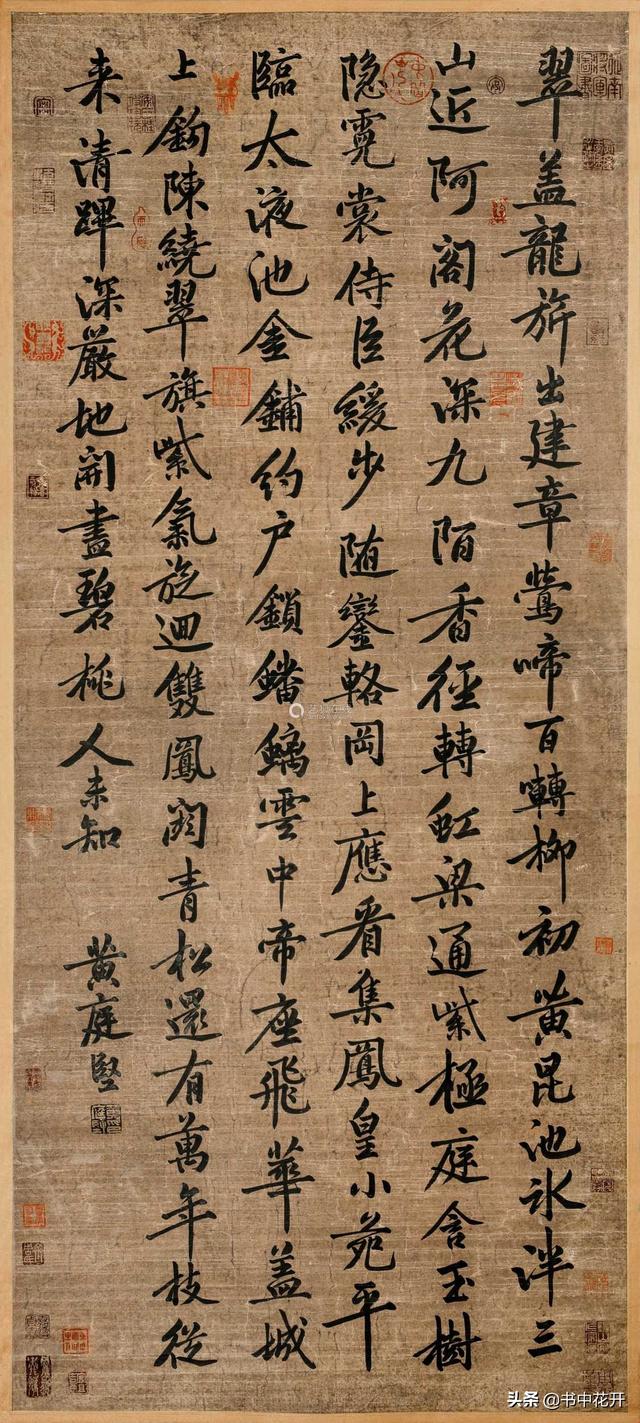 翠盖龍旂出建章鶯啼百囀柳初黄昆池氷泮三
山近阿閣花深九陌香徑轉虹梁通紫極庭含玉樹
隐霓裳侍臣緩步随鑾輅岡上應看集鳳皇小苑平
臨太液池金鋪約户鎖蟠螭雲中帝座飛華盖城
上鈎陳繞翠旗紫氣旋迴雙鳳闕青松還有萬年枝從
来清蹕深嚴地開盡碧桃人未知 黄庭堅
头条 @书中花开